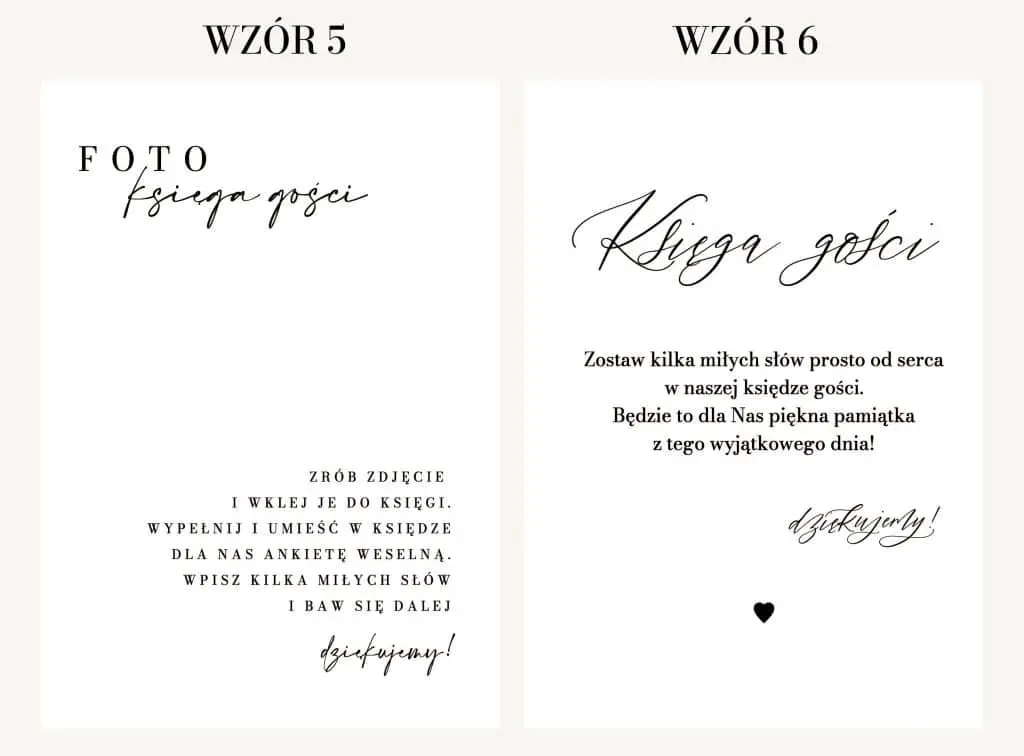 WZÓR 5
FOTO
księga gości
ZRÓB ZDJĘCIE
I WKLEJ JE DO KSIĘGI.
WYPEŁNIJ I UMIEŚĆ W KSIĘDZE
DLA NAS ANKIETĘ WESELNĄ.
WPISZ KILKA MIŁYCH SŁÓW
I BAW SIĘ DALEJ
dziękujemy!
WZÓR 6
Księga gości
Zostaw kilka miłych słów prosto od serca
w naszej księdze gości.
Będzie to dla Nas piękna pamiątka
z tego wyjątkowego dnia!
dziękujemy!